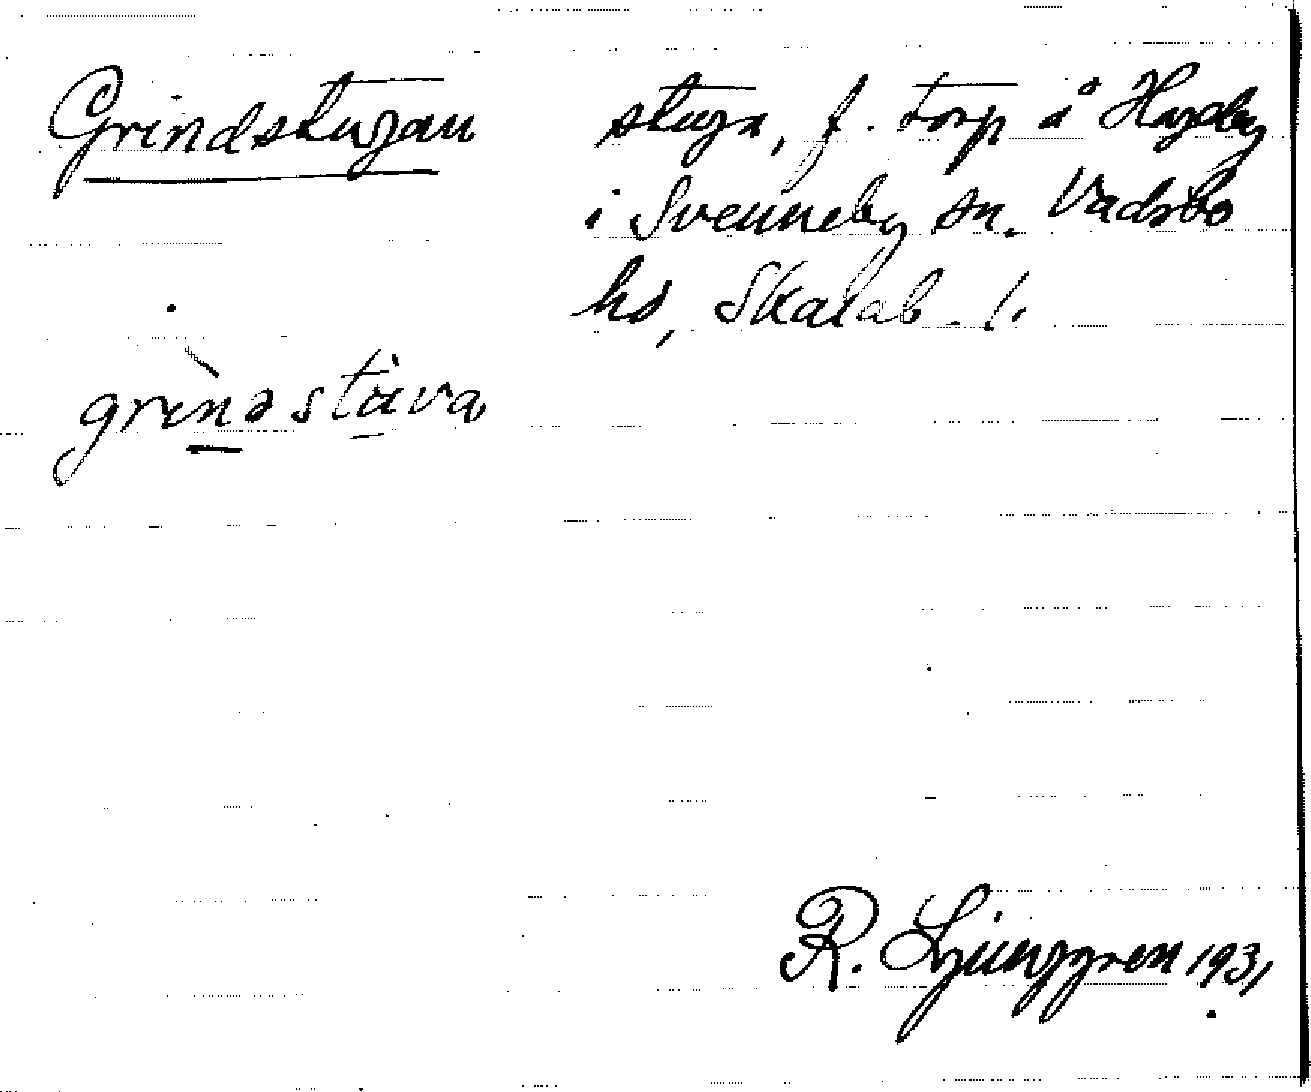 Grindstugan
stuga, f. torp å Högeby
i Svenneby sn. Vadsbo
hd, Skarab. l.
grinəstùva
R. Ljunggren 1931